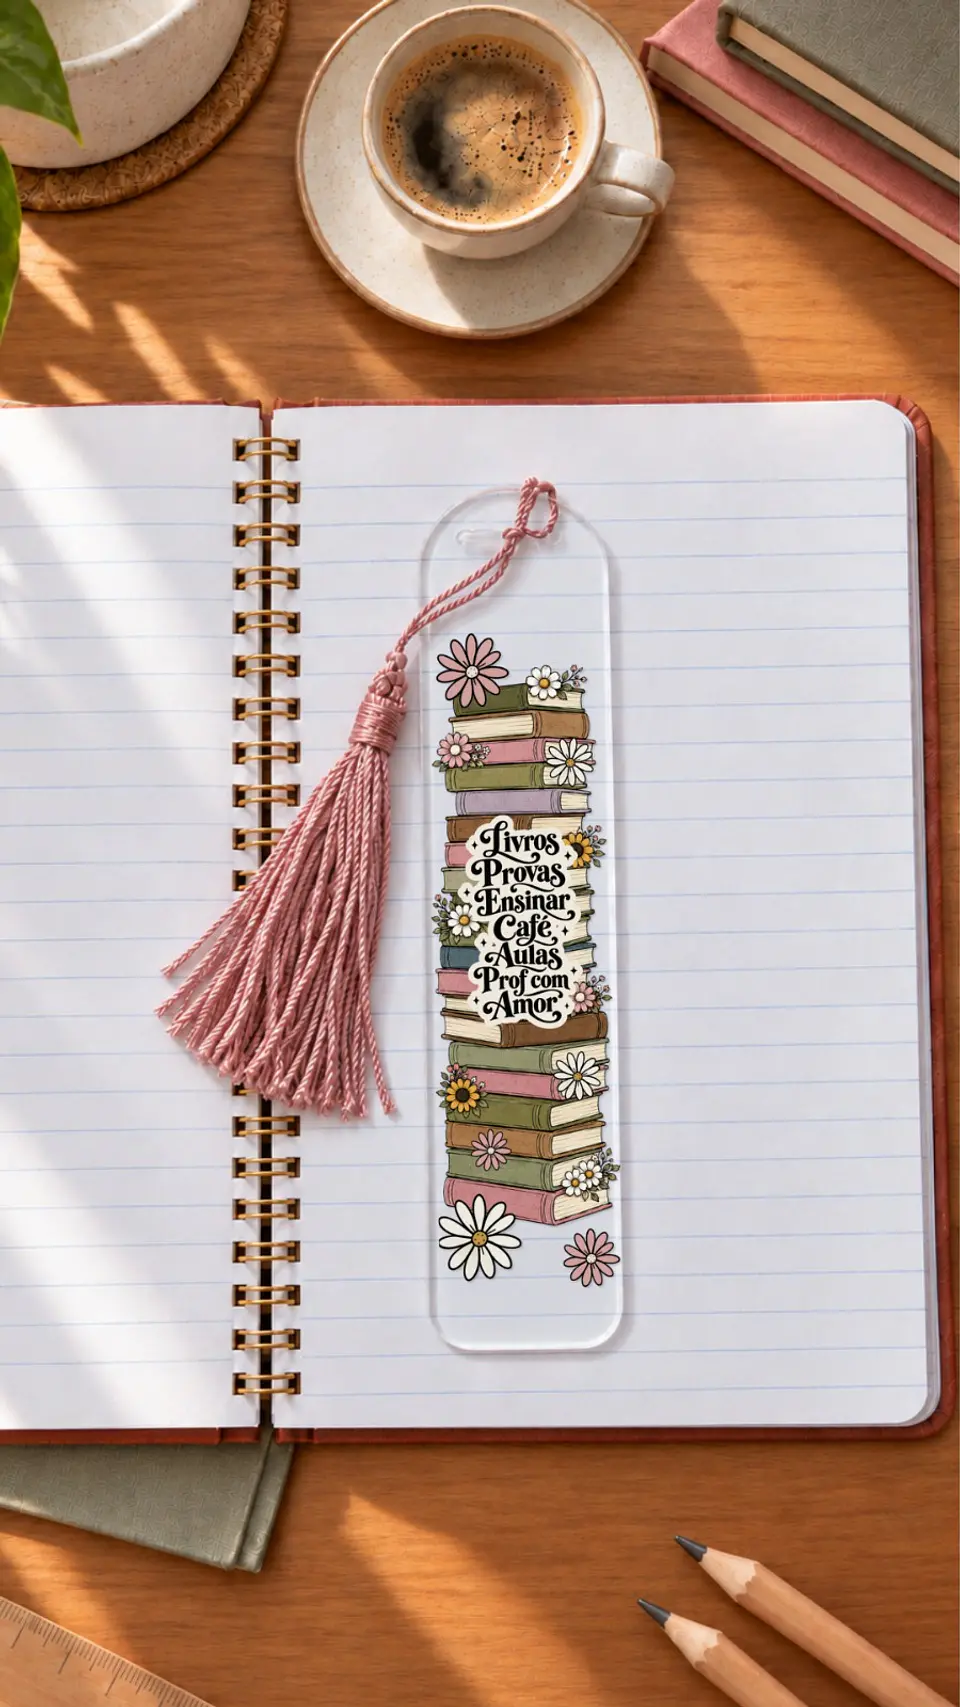 Livros
Provas
Ensinar
Café
Aulas
Prof com
Amor